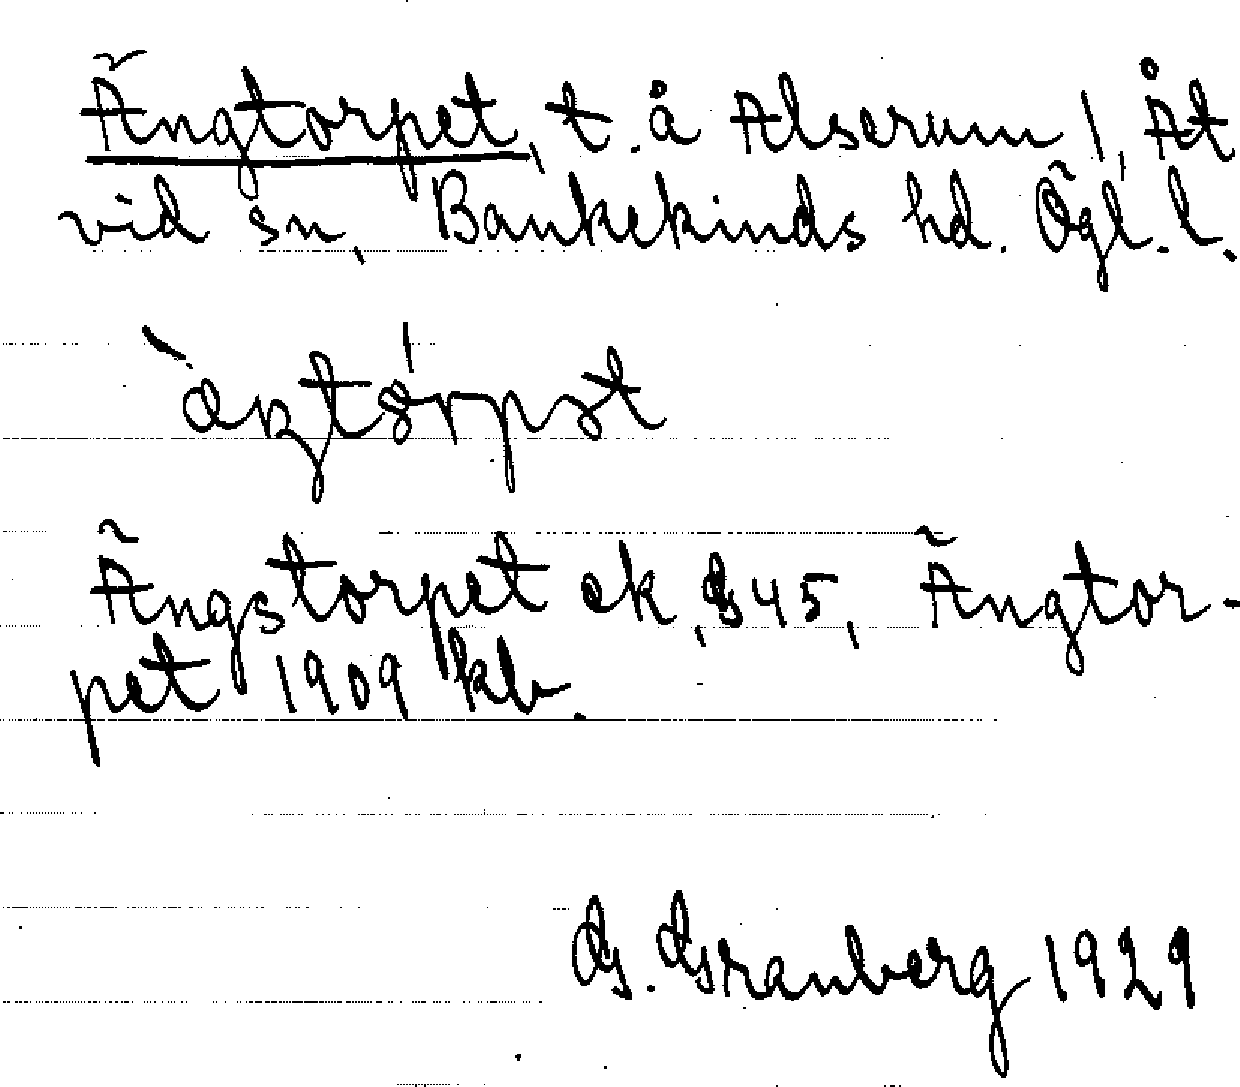 Ängtorpet, t. å Alserum 1, Åt
vid sn, Bankekinds hd. Ögl. l.
Ängstorpet ek, G 45, Ängtor-
pet 1909 kb.
G. Granberg 1929